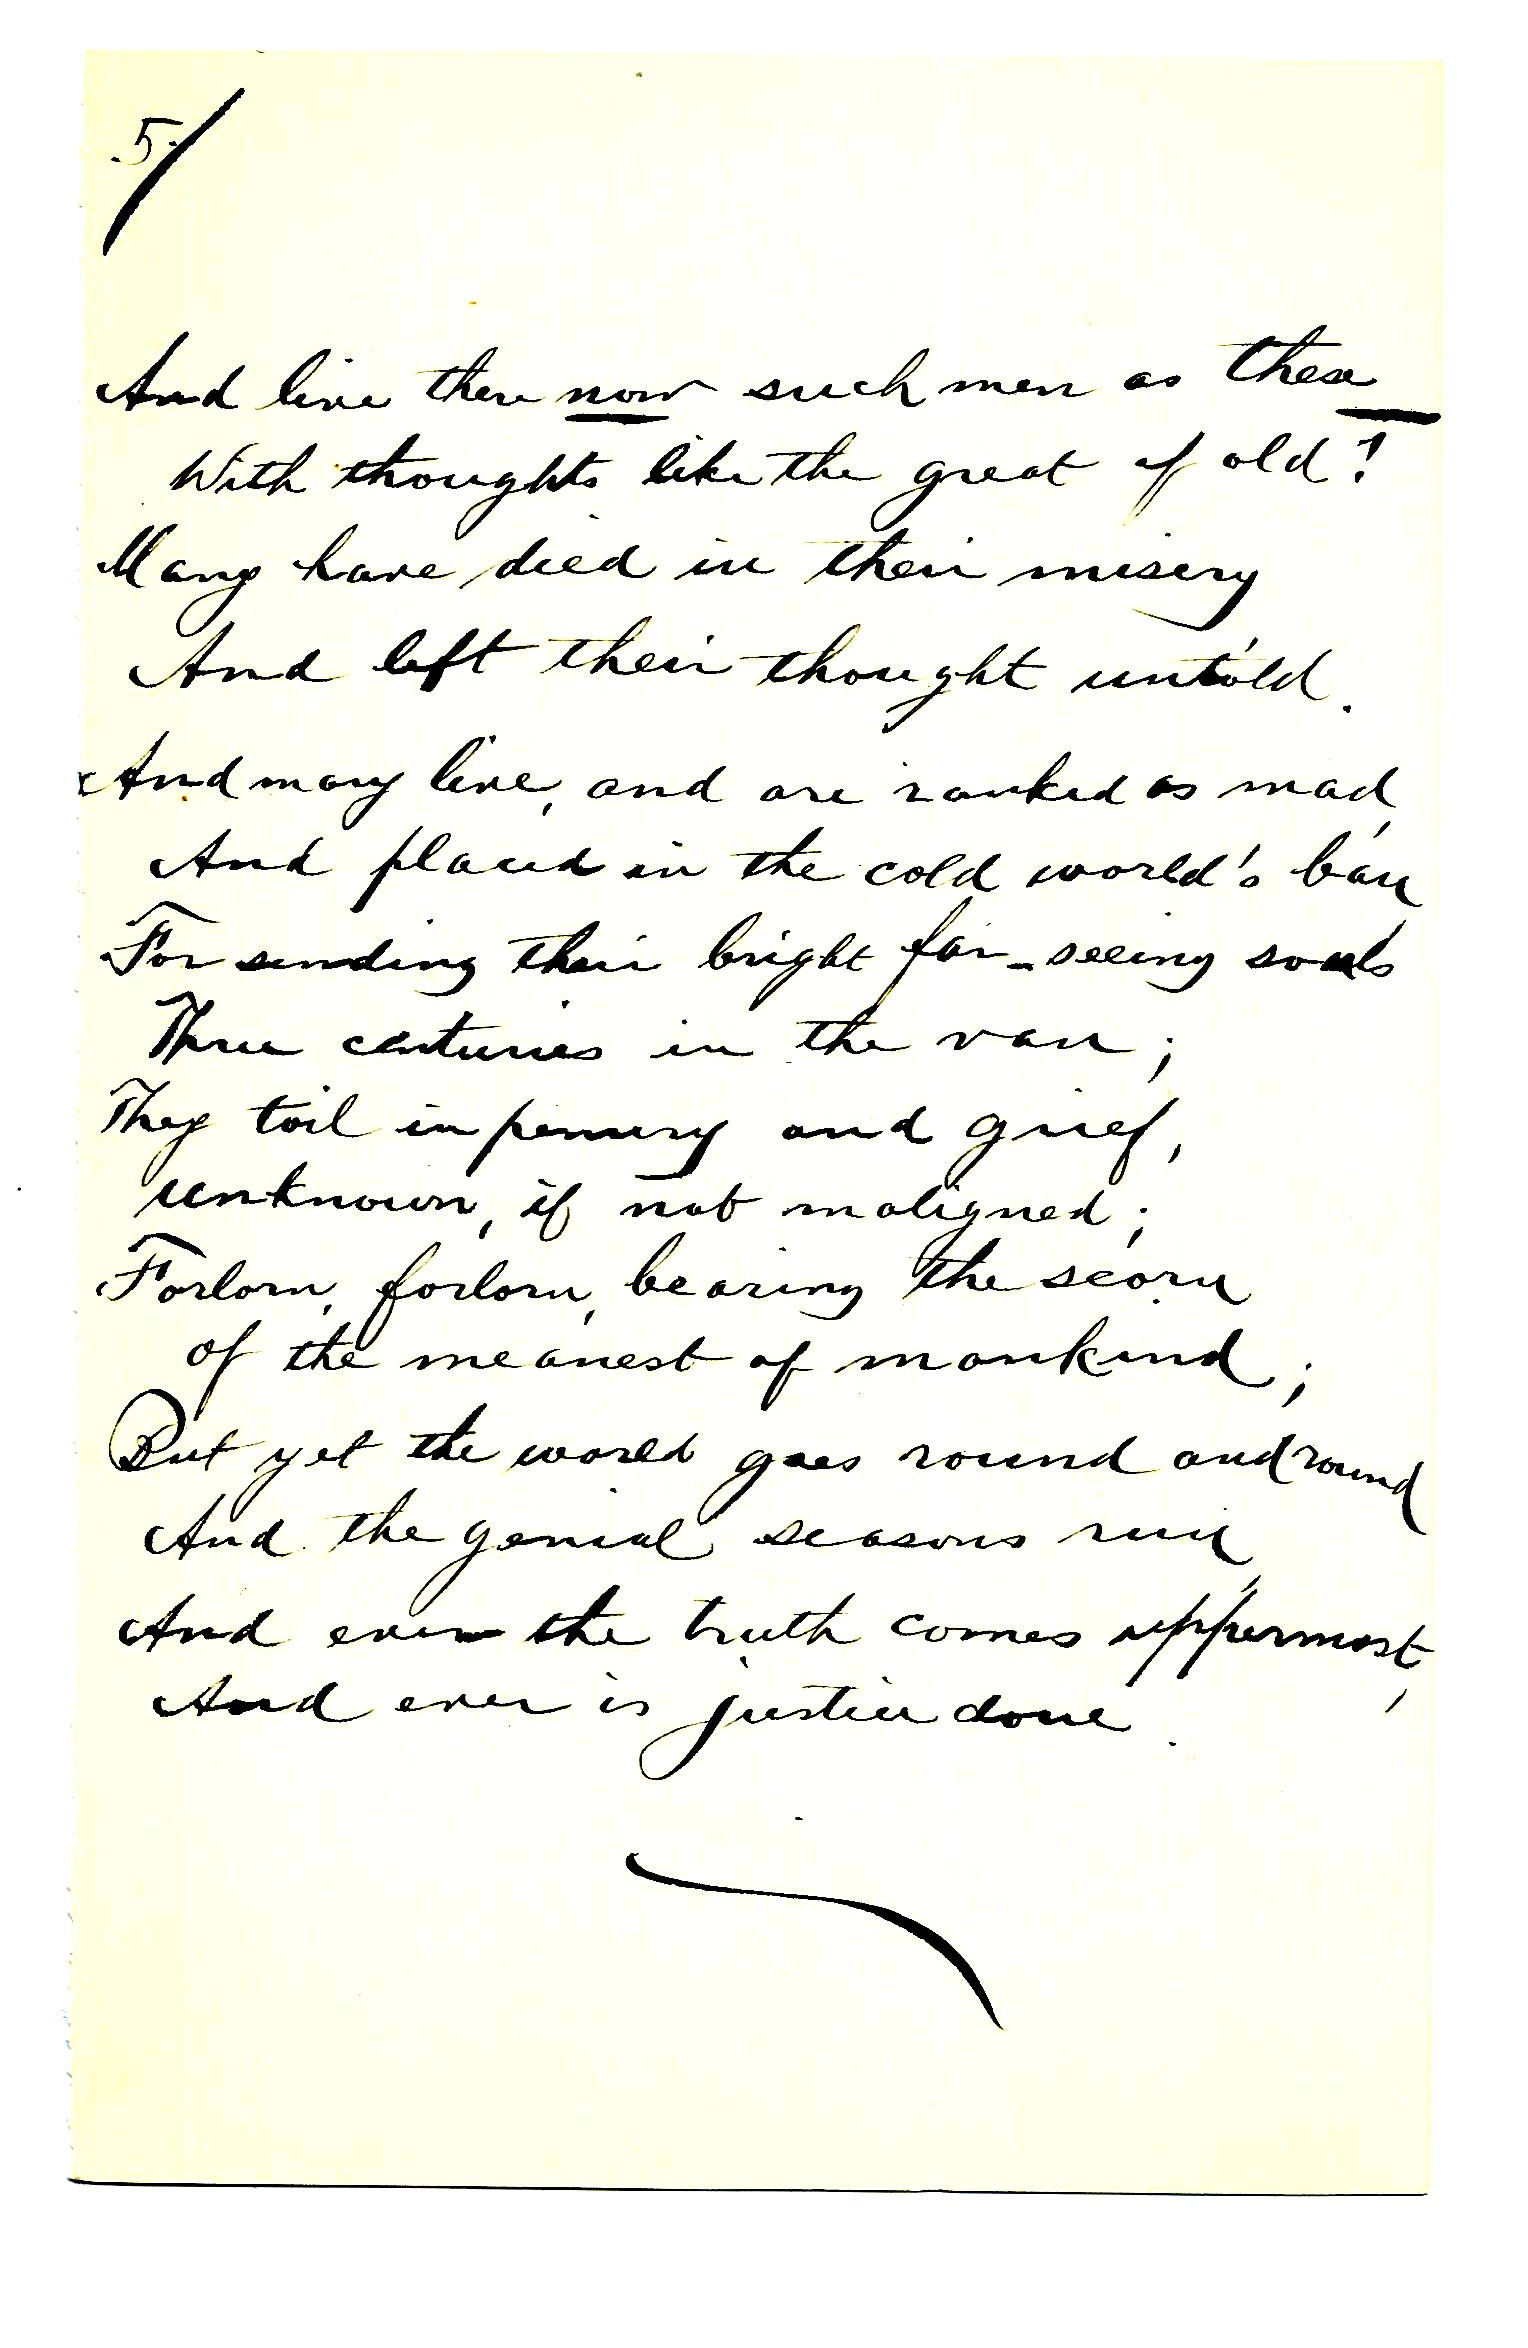 .5.
And live there now such men as these
With thoughts like the great of old?
Many have died in their misery
And left their thought untold.
And many live, and are ranked as mad,
And placed in the cold world's ban,
For sending their bright far-seeing souls
Three centuries in the van;
They toil in penury and grief,
unknown, if not maligned;
Forlorn, forlorn, bearing the scorn
of the meanest of mankind;
But yet the world goes round and round
And the genial seasons run,
And ever the truth comes uppermost,
And ever is justice done.